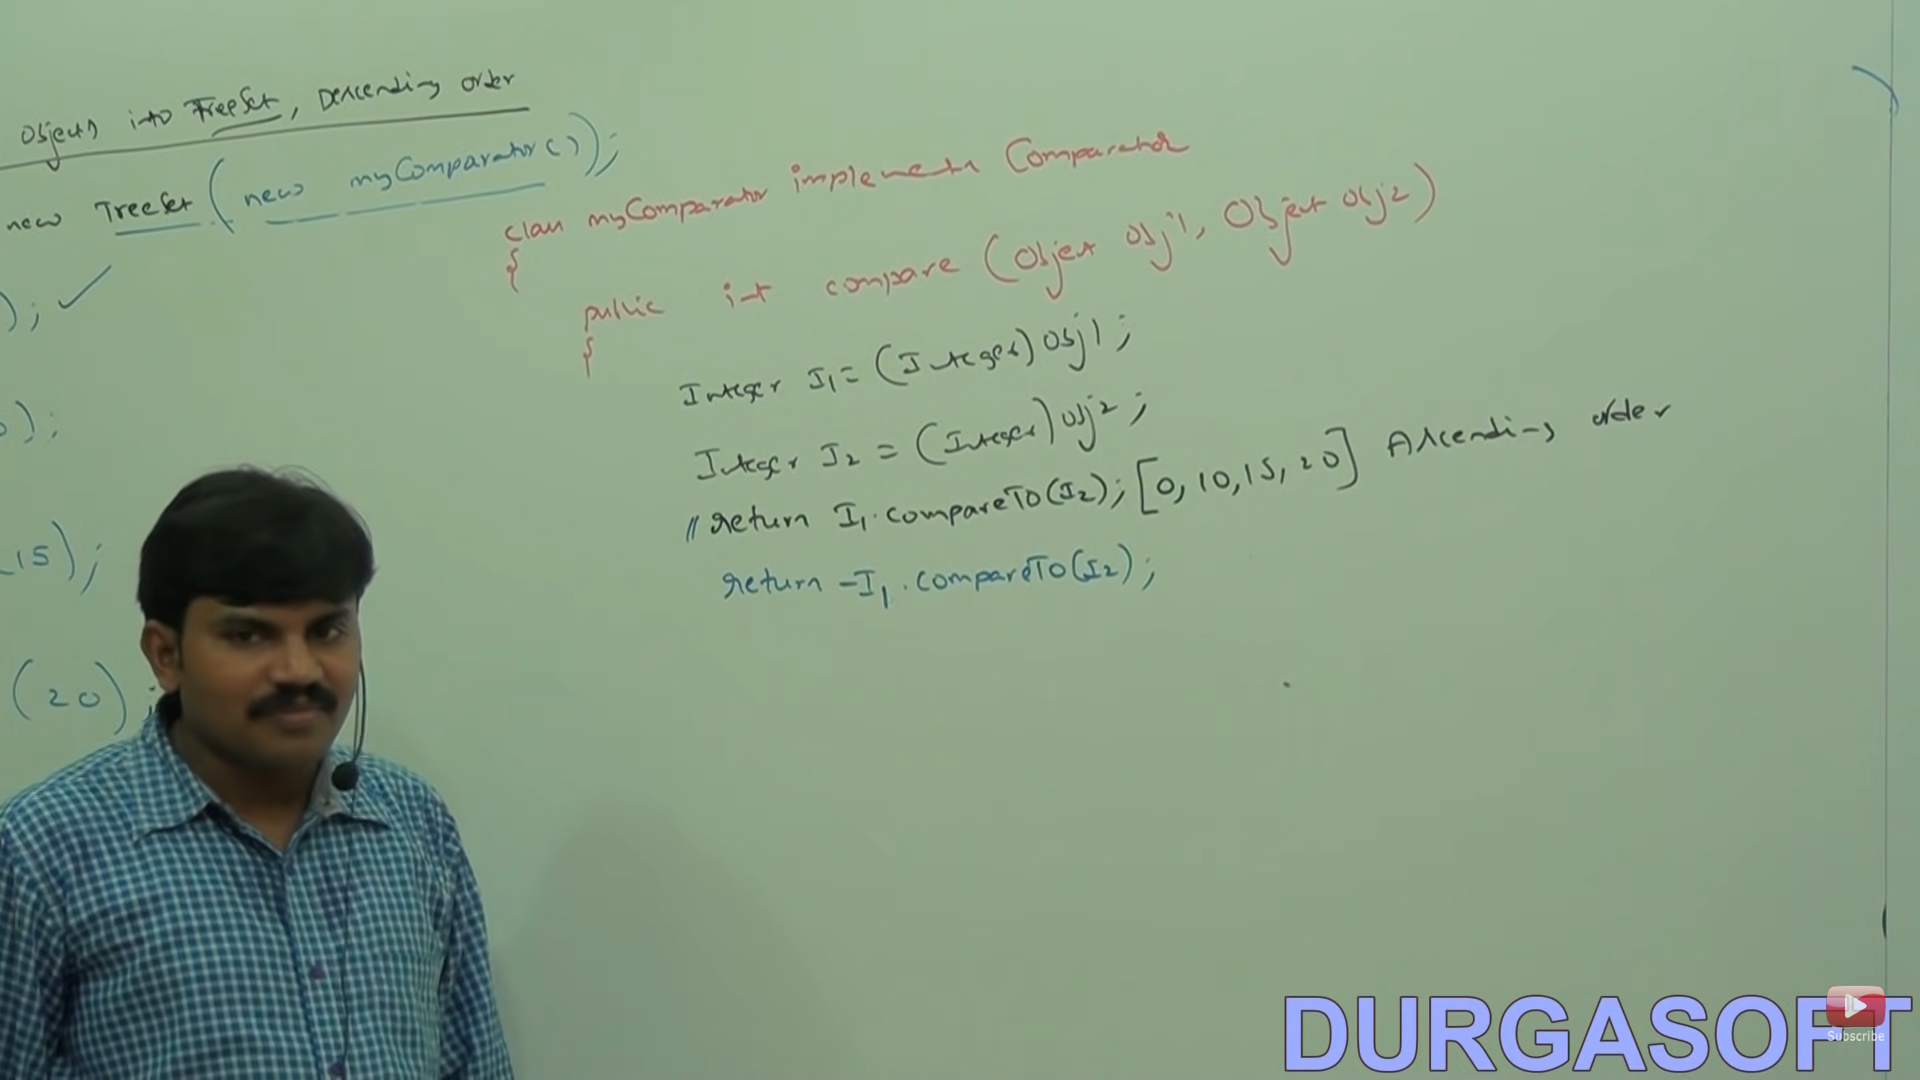 Objects into TreeSet, Descending order
new TreeSet (new myComparator());
class myComparator implements Comparator
{
); ✓
public int compare (Object obj1, Object obj2)
{
Integer I1 = (Integer) obj1;
);
Integer I2 = (Integer) obj2;
// return I1.compareTo(I2); [0, 10, 15, 20] Ascending order
15);
return -I1.compareTo(I2);
(20);
DURGASOFT
Subscribe